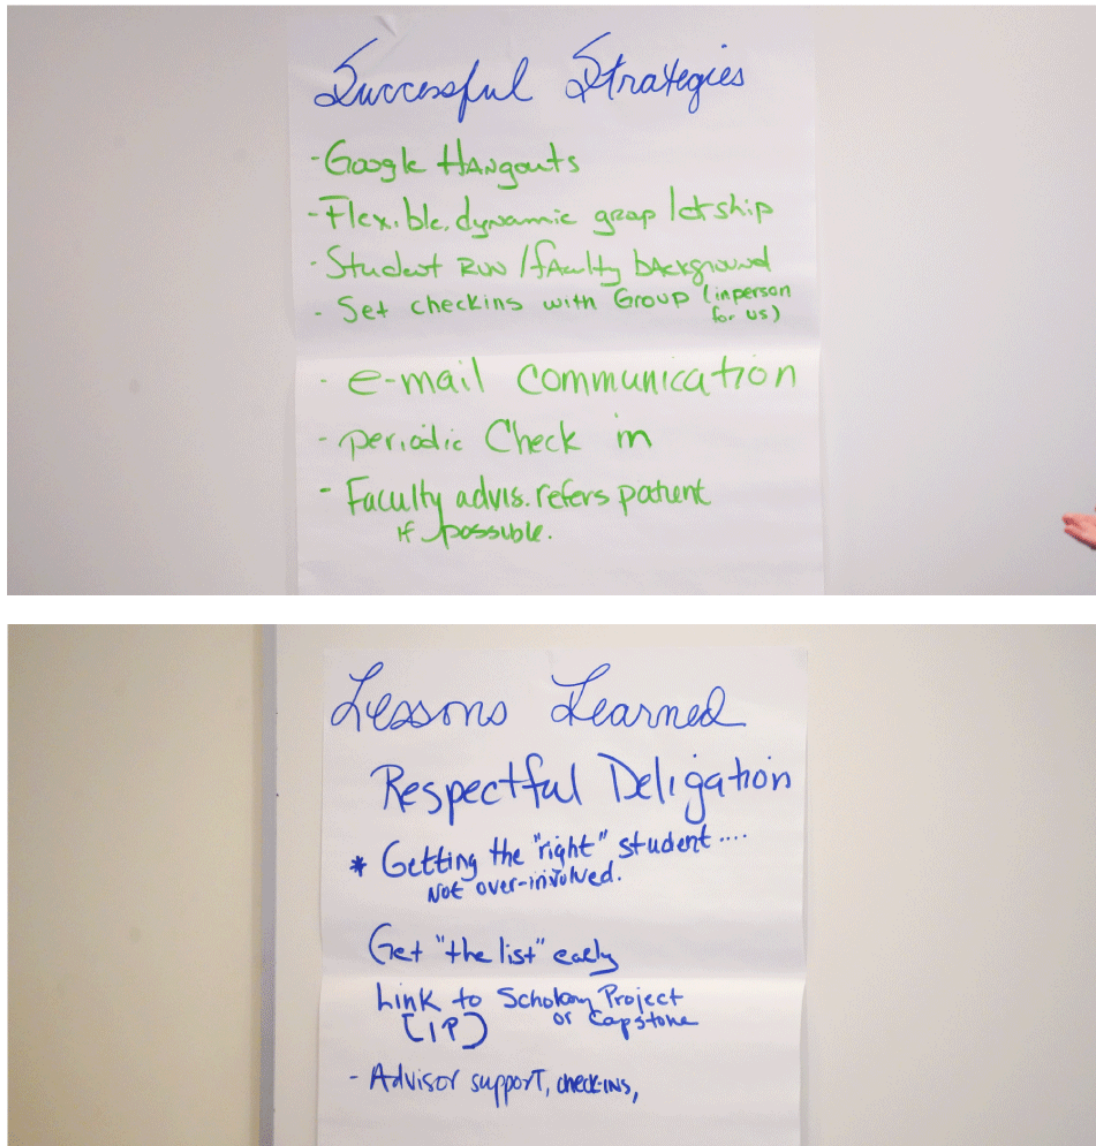 Successful Strategies
- Google Hangouts
- Flexible, dynamic group ldrship
- Student Run / faculty background
- Set checkins with Group (in person
for us)
- e-mail communication
- periodic Check in
- Faculty advis. refers patient
if possible.
Lessons Learned
Respectful Deligation
* Getting the "right" student ....
Not over-involved.
Get "the list" early
Link to Scholarly Project
[IP] or Capstone
- Advisor support, check-ins,